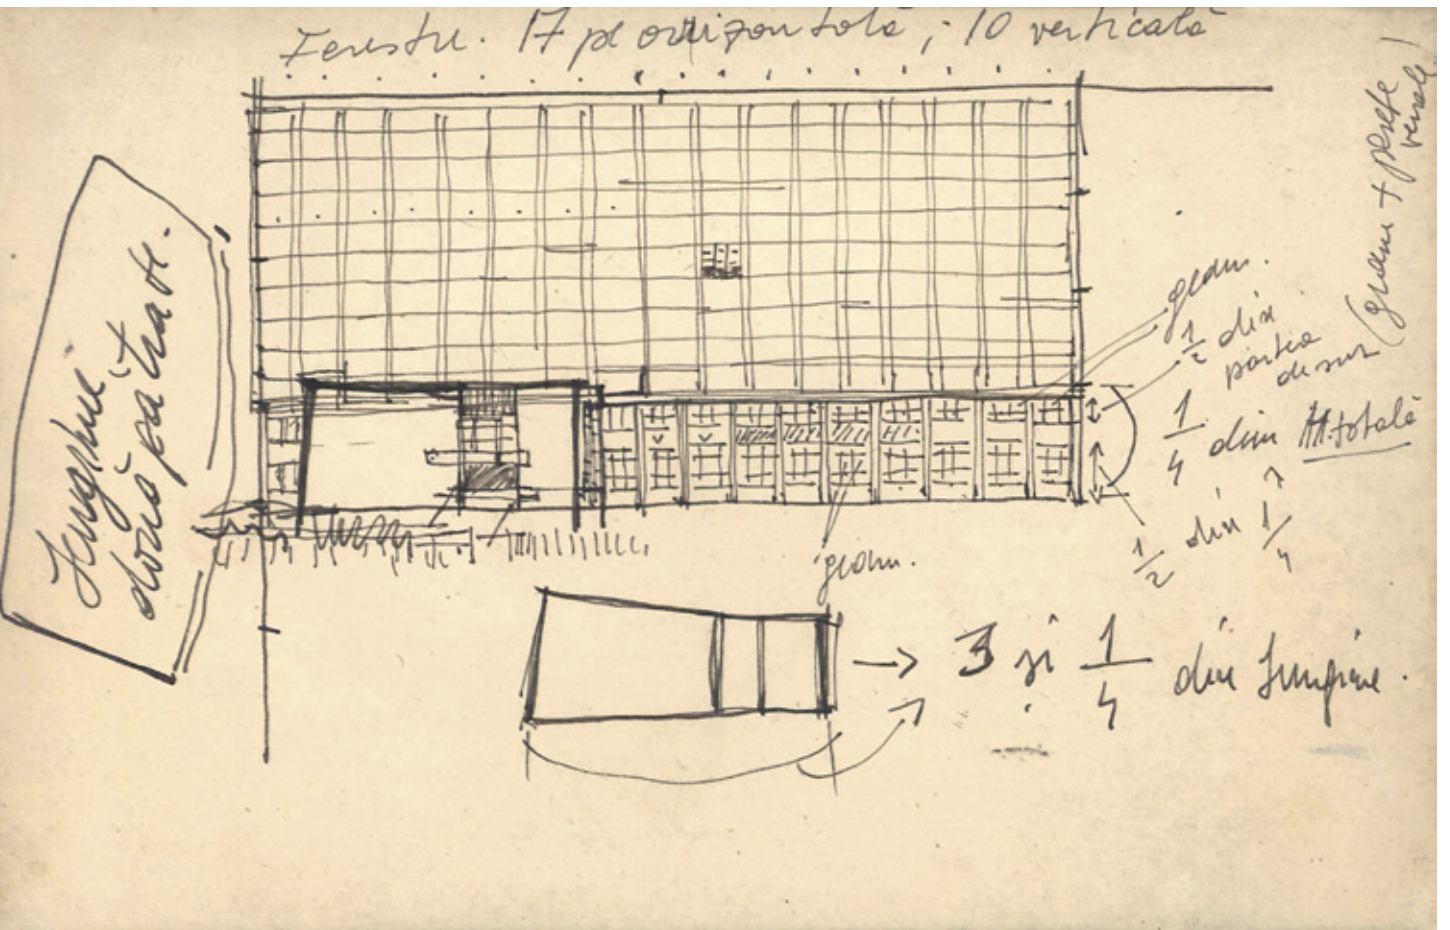 Ferestre. 17 pe orizontală ; 10 verticală
Lungime
două pătrate.
geam.
1/2 din
partea
de sus
(geam + perete
1/4 din H. totală
1/2 din 1/4
geam.
→ 3 și 1/4 din lungime.